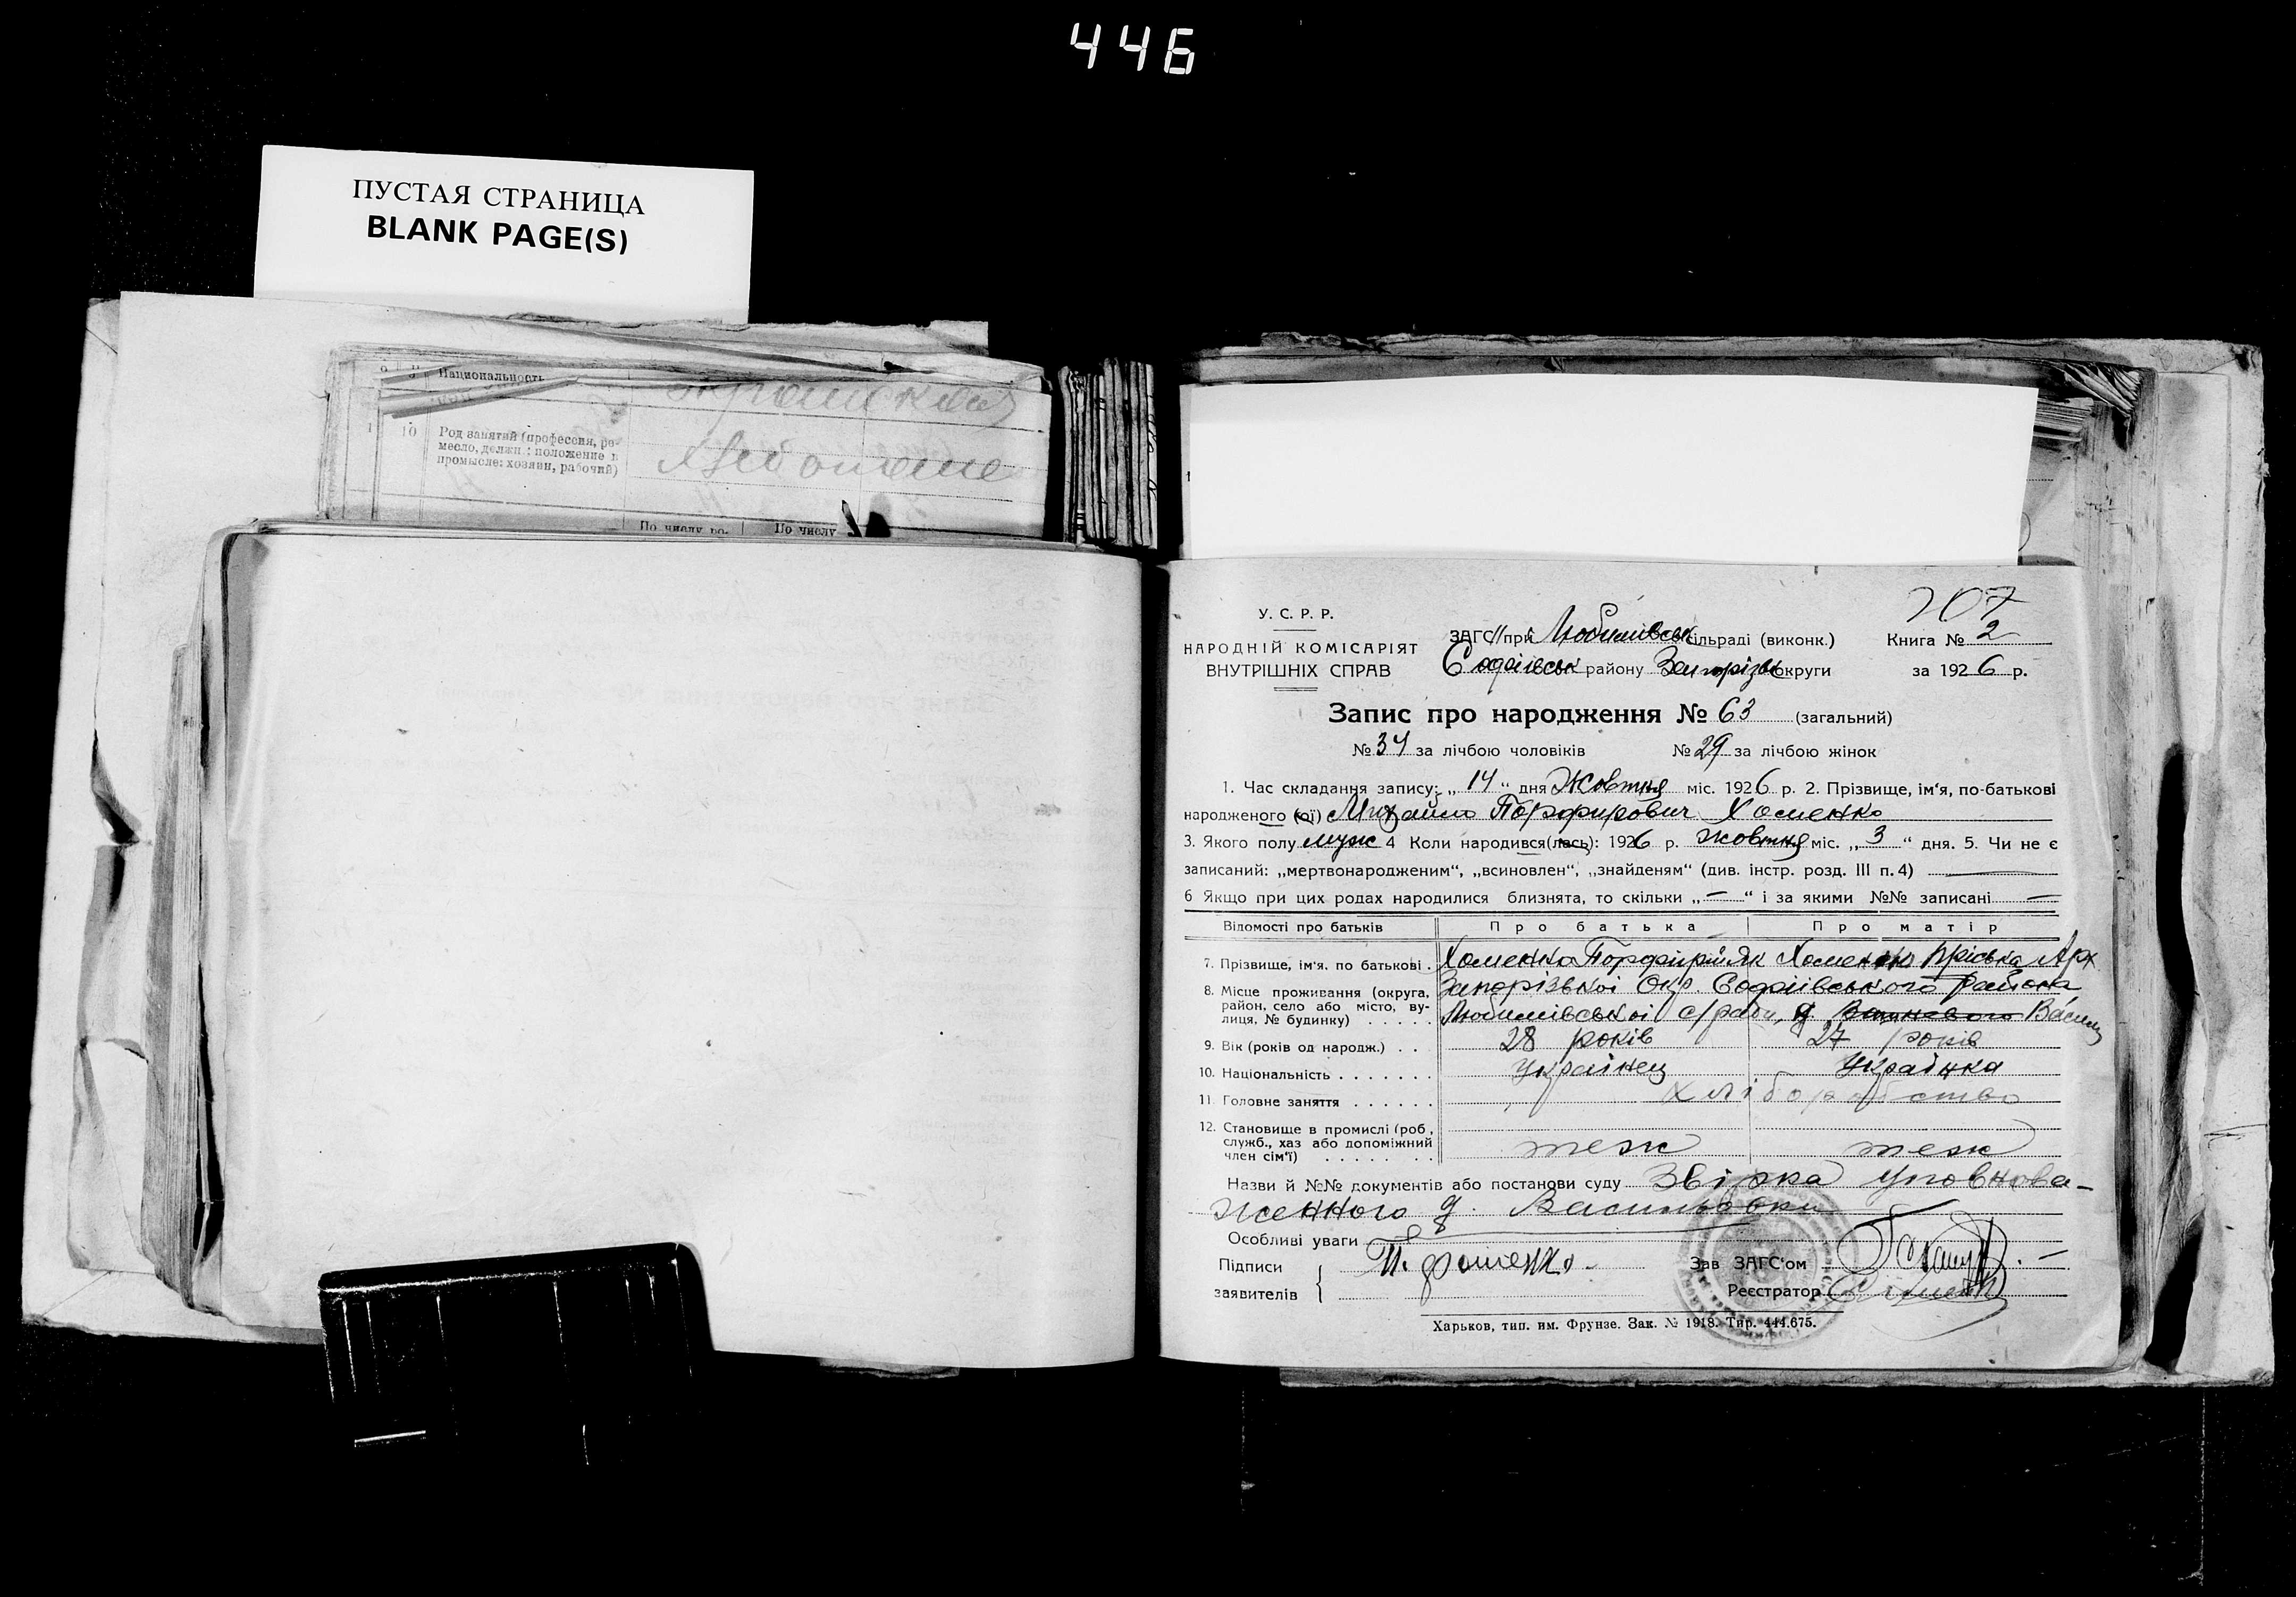 446
ПУСТАЯ СТРАНИЦА
BLANK PAGE(S)
9 Национальность
10 Род занятий (профессия, ре-
месло, должн.: положение в
промысле: хозяин, рабочий)
По числу ро- По числу
207
У. С. Р. Р.
НАРОДНІЙ КОМІСАРІЯТ
ВНУТРІШНІХ СПРАВ
ЗАГС при Любимівськ сільраді (виконк.) Книга № 2
Софіївськ району Запорізьк округи за 1926 р.
Запис про народження № 63 (загальний)
№ 34 за лічбою чоловіків № 29 за лічбою жінок
1. Час складання запису: „ 14 “ дня Жовтня міс. 1926 р. 2. Прізвище, ім‘я, по-батькові
народженого (ої) Михайло Порфирович Хоменко
3. Якого полу муж 4 Коли народився(лась): 1926 р. жовтня міс. „ 3 “ дня. 5. Чи не є
записаний: „мертвонародженим“, „всиновлен“, „знайденям“ (див. інстр. розд. III п. 4) —
6 Якщо при цих родах народилися близнята, то скільки „ — “ і за якими №№ записані —
Відомості про батьків Про батька Про матір
7. Прізвище, ім‘я. по батькові . Хоменко Порфирий Як Хоменко Пріська Арх
8. Місце проживання (округа,
район, село або місто, ву-
лиця, № будинку) . . . . .
Запорізької Окр. Софиівського района
Любимівської с/ради,
9. Вік (років од народж.) . . 28 років 27 років
10. Національність . . . . . . . Українец Українка
11. Головне заняття . . . . . . хліборобство
12. Становище в промислі (роб,
служб., хаз або допоміжний
член сім‘ї) . . . . . . . теж теж
Назви й №№ документів або постанови суду Звірка уповнова-
женного д. Васильовки
Особливі уваги
Підписи
заявителів
Зав ЗАГС‘ом
Реєстратор
Харьков, тип. им. Фрунзе. Зак. № 1918. Тир. 444.675.